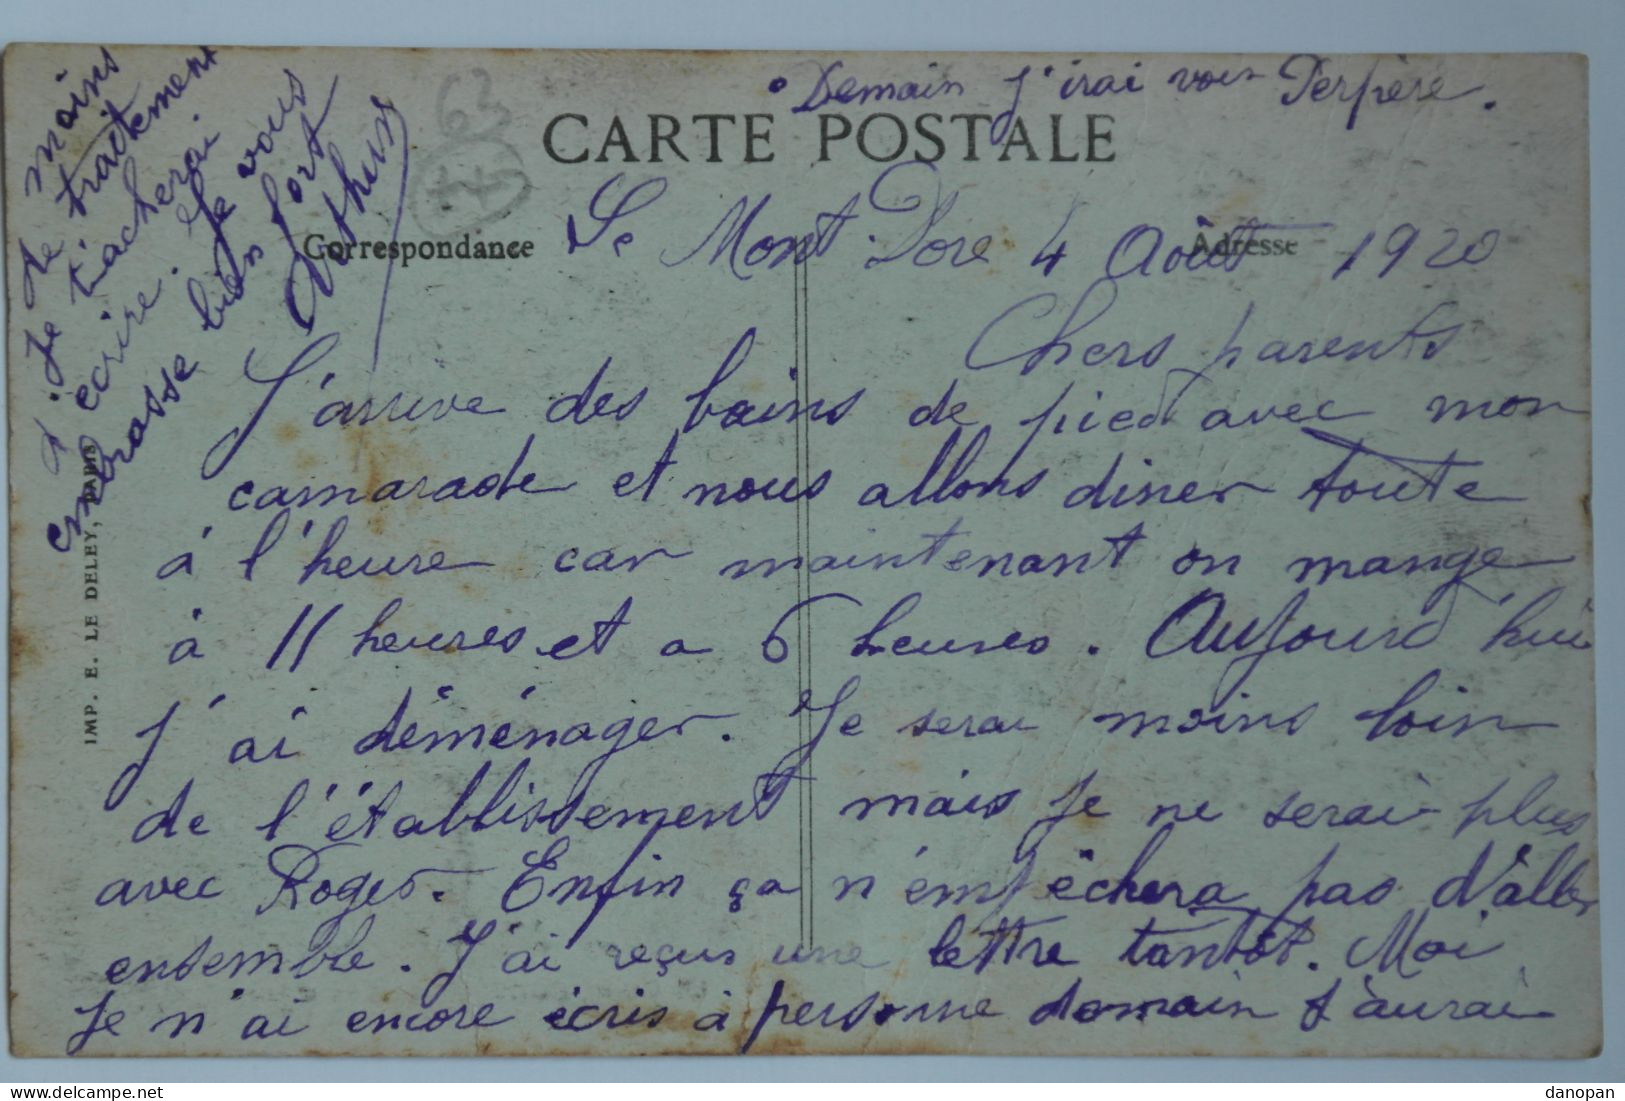 • Demain j'irai voir Perpère.
63
CARTE POSTALE
Correspondance
Adresse
Le Mont Dore 4 Août 1920
Chers parents
J'arrive des bains de pied avec mon
camarade et nous allons diner toute
à l'heure car maintenant on mange
à 11 heures et a 6 heures. Aujourd'hui
j'ai déménager. Je serai moins loin
de l'établissement mais je ne serai plus
avec Roger. Enfin ça n'empêchera pas d'aller
ensemble. J'ai reçus une lettre tantôt. Moi
je n'ai encore écris à personne demain j'aurai
moins
de traitement
je tâcherai
d'ecrire. Je vous
embrasse bien fort
Arthur
IMP. E. LE DELEY, PARIS
delcampe.net
danopan